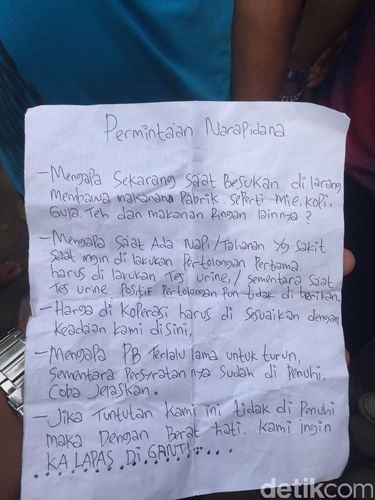 Permintaan Narapidana.
- Mengapa Sekarang Saat Besukan di larang
Membawa makanana Pabrik. Seperti Mie, kopi,
Gula, Teh dan makanan Ringan lainnya?
- Mengapa Saat Ada Napi/Tahanan yg sakit
Saat ingin di lakukan Pertolongan Pertama
harus di lakukan Tes urine,/ sementara Saat
Tes urine Positif Pertolongan Pun tidak di berikan.
- Harga di Koperasi harus di sesuaikan dengan
keadaan kami disini,
- Mengapa PB Terlalu lama untuk turun,
Sementara Persyaratannya Sudah di Penuhi,
Coba Jelaskan.
- Jika Tuntutan Kami ini tidak di Penuhi
maka Dengan Berat hati. kami ingin
KALAPAS DI GANTI.....
detikcom